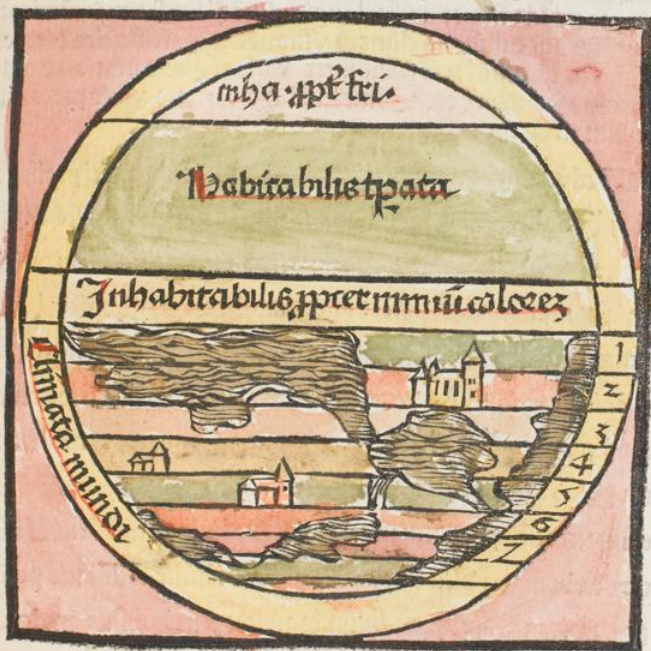 inha. ppt fri.
Habitabilis tpata
Inhabitabilis ppter nimiū calorez
Climata mundi
1
2
3
4
5
6
7